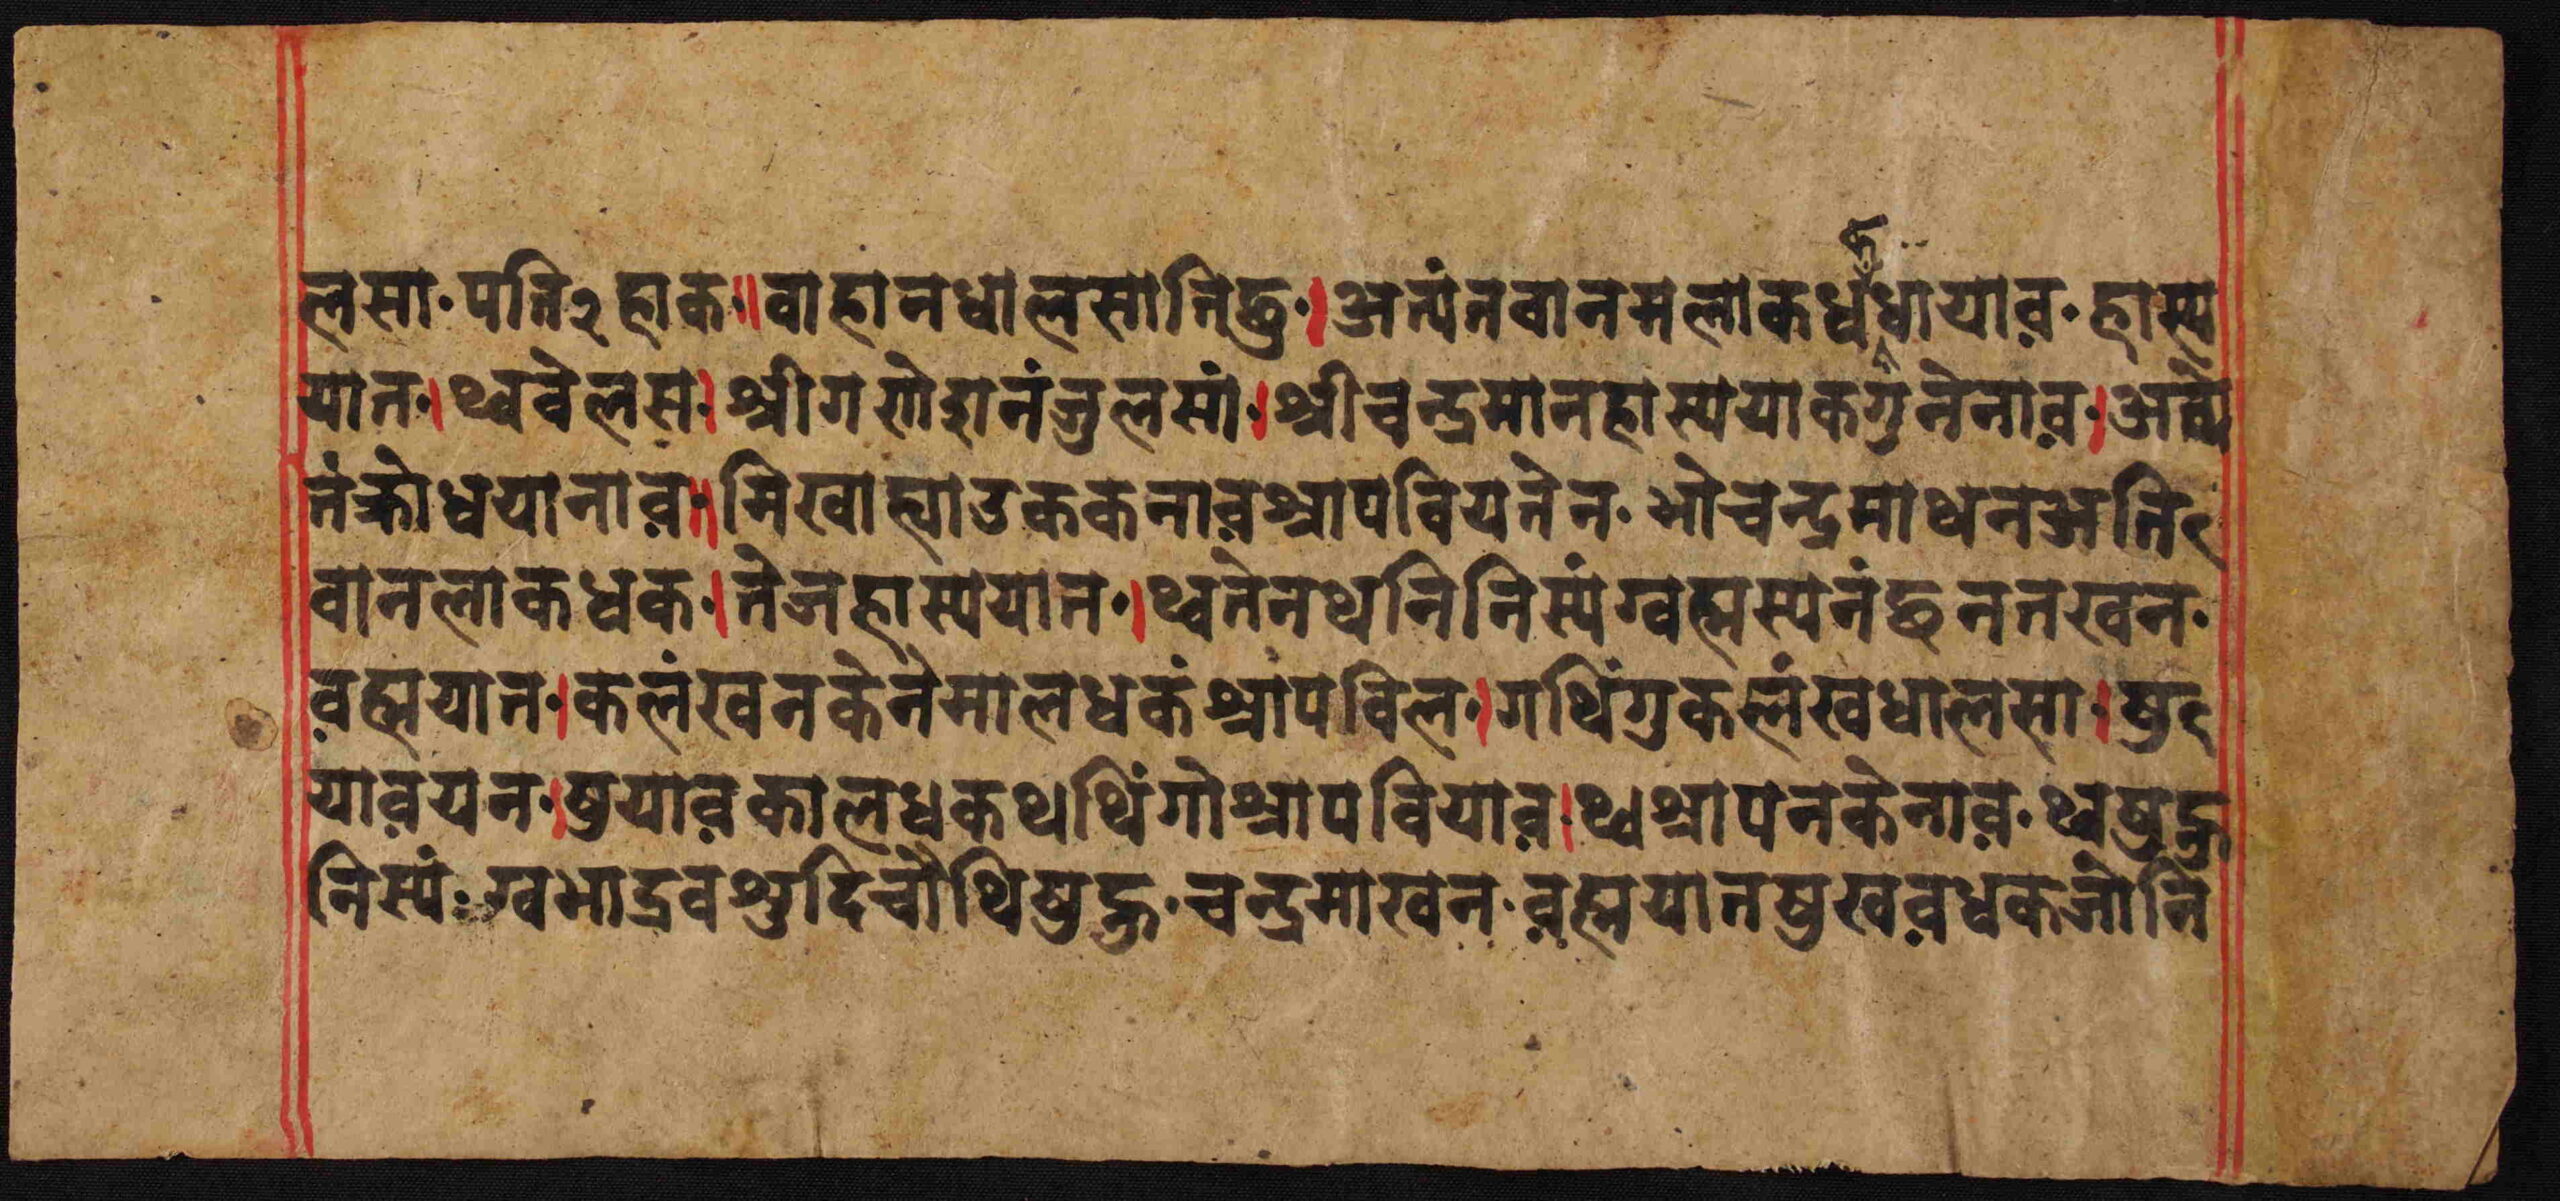 लसा. पतिं२ हाक.॥ वाहानधालसातिछु.। अत्यंतवानमलाकधकंधायाव़. हास्य
यात.। थ्ववेलस.। श्रीगणेशनंजुलसां.। श्रीचन्द्रमानहास्ययाकगुनेनाव़.। अत्ये
तंक्रोधयानाव़.॥ मिखाह्याउककनाव़श्रापवियतेन. भोचन्द्रमाथनअति
वानलाकधक.। तेजहास्ययात.। थ्वतेनथनिनिस्यंग्वह्मस्यनंछनतखन.
व़ह्मयात.। कलंखनकेनेमालधकंश्रापविल.। गथिंगुकलंखधालसा.। षु
याव़यन.। षुयाव़कालधकथथिंगोश्रापवियाव़.। थ्वश्रापनकेनाव़. थ्वषुह्नु
निस्यं. ग्वभाद्रवशुदिचौथिषुह्नु. चन्द्रमाखन. व़ह्मयातषुखव़धकजोनि